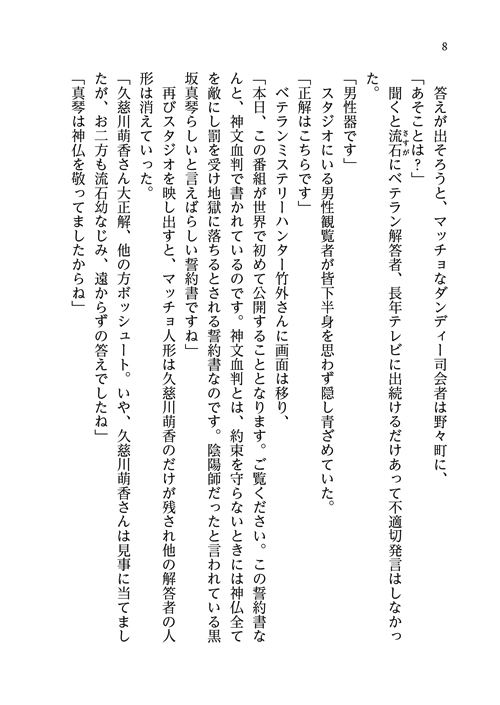 8
答えが出そろうと、マッチョなダンディー司会者は野々町に、
「あそことは？」
聞くと流石にベテラン解答者、長年テレビに出続けるだけあって不適切発言はしなかっ
さすが
た。
「男性器です」
スタジオにいる男性観覧者が皆下半身を思わず隠し青ざめていた。
「正解はこちらです」
ベテランミステリーハンター竹外さんに画面は移り、
「本日、この番組が世界で初めて公開することとなります。ご覧ください。この誓約書な
んと、神文血判で書かれているのです。神文血判とは、約束を守らないときには神仏全て
を敵にし罰を受け地獄に落ちるとされる誓約書なのです。陰陽師だったと言われている黒
坂真琴らしいと言えばらしい誓約書ですね」
再びスタジオを映し出すと、マッチョ人形は久慈川萌香のだけが残され他の解答者の人
形は消えていった。
「久慈川萌香さん大正解、他の方ボッシュート。いや、久慈川萌香さんは見事に当てまし
たが、お二方も流石幼なじみ、遠からずの答えでしたね」
「真琴は神仏を敬ってましたからね」